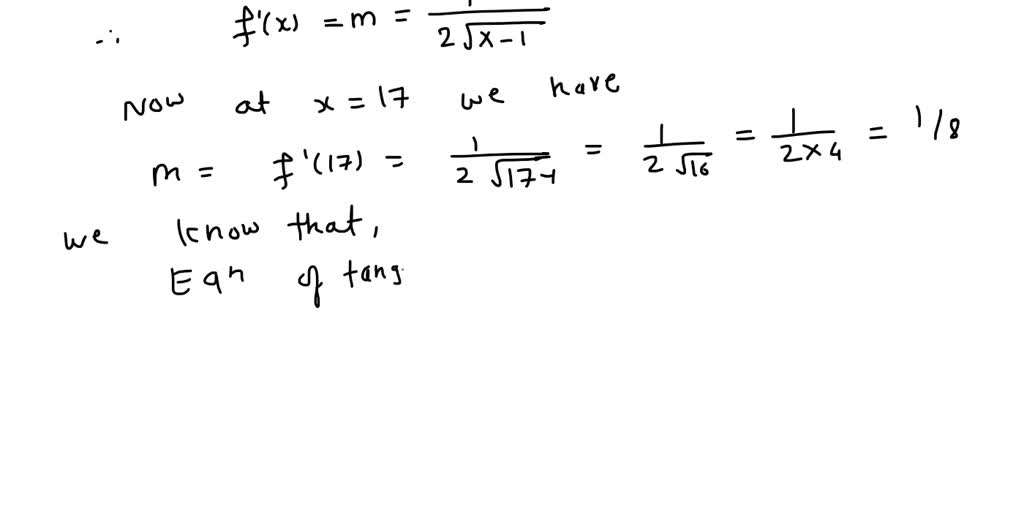 ∴ f'(x) = m = 1/(2√(x-1))
Now at x = 17 we have
m = f'(17) = 1/(2√(17-1)) = 1/(2√16) = 1/(2×4) = 1/8
we know that,
Eqn of tang